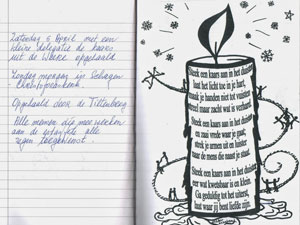 Zaterdag 5 April met een
kleine delegatie de kaars
uit de Weere opgehaald
Zondag morgen in Schagen
Christoforuskerk
Opgehaald door de Tiltenberg
Alle mensen die mee werken
aan de estafette alle
zegen toegewenst
Steek een kaars aan in het duister
laat het licht toe in je hart,
maak je handen niet tot vuisten
wreed maar zo waar je gaat;
Steek een kaars aan in het duister
en zaai vrede waar je gaat;
strek je armen uit en luister
naar de mens die naast je staat.
Steek een kaars aan in het duister
eer wat kwetsbaar is en klein.
Ga geduldig tot het uiterst,
laat waar jij bent liefde zijn.